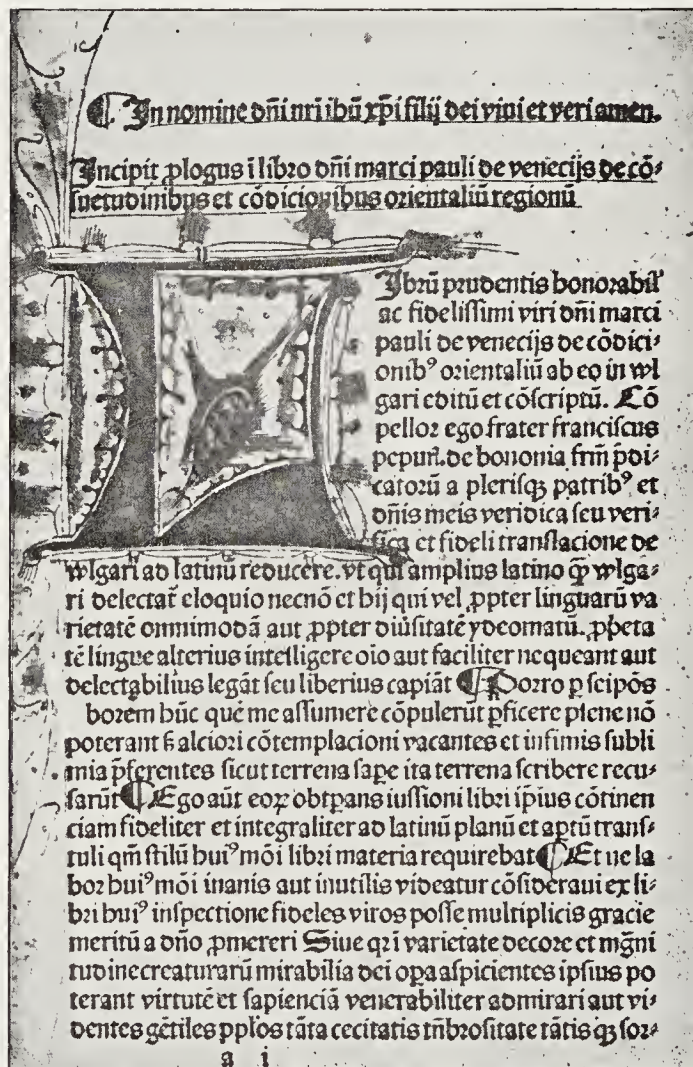 In nomine dñi nri ihũ xp̃i filij dei viui et veri amen.
Incipit ꝓlogus ĩ libro dñi marci pauli de venecijs de cõ⸗
suetudinibus et cõdicionibus orientaliũ regionũ
Librũ prudentis honorabil'
ac fidelissimi viri dñi marci
pauli de venecijs de cõdici⸗
onibꝰ orientaliũ ab eo in wl
gari editũ et cõscriptũ. Cõ
pellor ego frater franciscus
pepuñ. de bononia frm̃ p̃di⸗
catorũ a plerisqꝫ patribꝰ et
dñis meis veridica seu veri⸗
fica et fideli translacione de
wlgari ad latinũ reducere. vt qui amplius latino q̃ȝ wlga⸗
ri delectat̃ eloquio necnõ et hij qui vel ꝓpter linguarũ va
rietatẽ omnimodã aut ꝓpter diũsitatẽ ydeomatũ. ꝓp̃heta
tẽ lingue alterius intelligere oĩo aut faciliter nequeant aut
delectabilius legãt seu liberius capiãt ¶ Porro ꝑ seip̃os
borem hũc quẽ me assumere cõpulerũt ꝑficere plene nõ
poterant s̃ alciori cõtemplacioni vacantes et infimis subli
mia p̃ferentes sicut terrena sape ita terrena scribere recu⸗
sarũt ¶ Ego aũt eoꝝ obtꝑans iussioni libri ip̃ius cõtinen
ciam fideliter et integraliter ad latinũ planũ et aptũ trans⸗
tuli qm̃ stilũ huiꝰ mõi libri materia requirebat ¶ Et ne la
bor huiꝰ mõi inanis aut inutilis videatur cõsideraui ex li⸗
bri huiꝰ inspectione fideles viros posse multiplicis gracie
meritũ a dño ꝓmereri Siue qr ĩ varietate decore et mg̃ni
tudine creaturarũ mirabilia dei oꝑa aspicientes ipsius po
terant virtutẽ et sapienciã venerabiliter admirari aut vi⸗
dentes gẽtiles pp̃los tãta cecitatis tñbrositate tãtis qꝫ sor⸗
a i